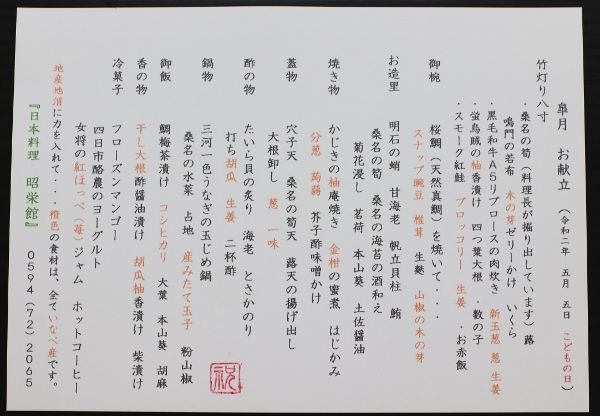 皐月 お献立 （令和二年 五月 五日 こどもの日）
竹灯り八寸
・桑名の筍（料理長が掘り出しています）蕗
鳴門の若布 木の芽ゼリーかけ いくら
・黒毛和牛A5リブロースの肉炊き 新玉葱 葱 生姜
・蛍烏賊の柚香漬け 四つ葉大根 ・数の子
・スモーク紅鮭 ブロッコリー 生姜 ・お赤飯
御椀 桜鯛（天然真鯛）を焼いて・・・
スナップ豌豆 椎茸 生麩 山椒の木の芽
お造里 明石の蛸 甘海老 帆立貝柱 鮪
桑名の筍 桑名の海苔の酒和え
菊花浸し 茗荷 本山葵 土佐醤油
焼き物 かじきの柚庵焼き 金柑の蜜煮 はじかみ
分葱 蒟蒻 芥子酢味噌かけ
蓋物 穴子天 桑名の筍天 蕗天の揚げ出し
大根卸し 葱 一味
酢の物 たいら貝の炙り 海老 とさかのり
打ち胡瓜 生姜 二杯酢
鍋物 三河一色うなぎの玉じめ鍋
桑名の水菜 占地 産みたて玉子 粉山椒
御飯 鯛梅茶漬け コシヒカリ 大葉 本山葵 胡麻
香の物 干し大根酢醤油漬け 胡瓜柚香漬け 柴漬け
冷菓子 フローズンマンゴー
四日市酪農のヨーグルト
女将の紅ほっぺ（苺）ジャム ホットコーヒー
地産地消に力を入れて・・・橙色の食材は、全ていなべ産です。
『日本料理 昭栄館』 0594（72）2065
祝